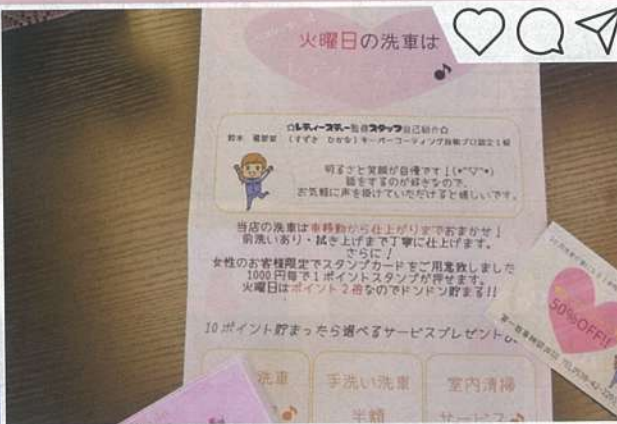 火曜日の洗車は
☆レディースデー監修スタッフ自己紹介☆
鈴木 （すずき ひかる）キーパーコーティング技術プロ認定1級
明るさと笑顔が自慢です！(*^▽^*)
話をするのが好きなので、
お気軽に声を掛けていただけると嬉しいです。
当店の洗車は車移動から仕上がりまでおまかせ！
前洗いあり・拭き上げまで丁寧に仕上げます。
さらに！
女性のお客様限定でスタンプカードをご用意致しました
1000円毎で1ポイントスタンプが押せます。
火曜日はポイント2倍なのでドンドン貯まる!!
10ポイント貯まったら選べるサービスプレゼント
洗車
手洗い洗車
半額
室内清掃
サービス
50%OFF!!